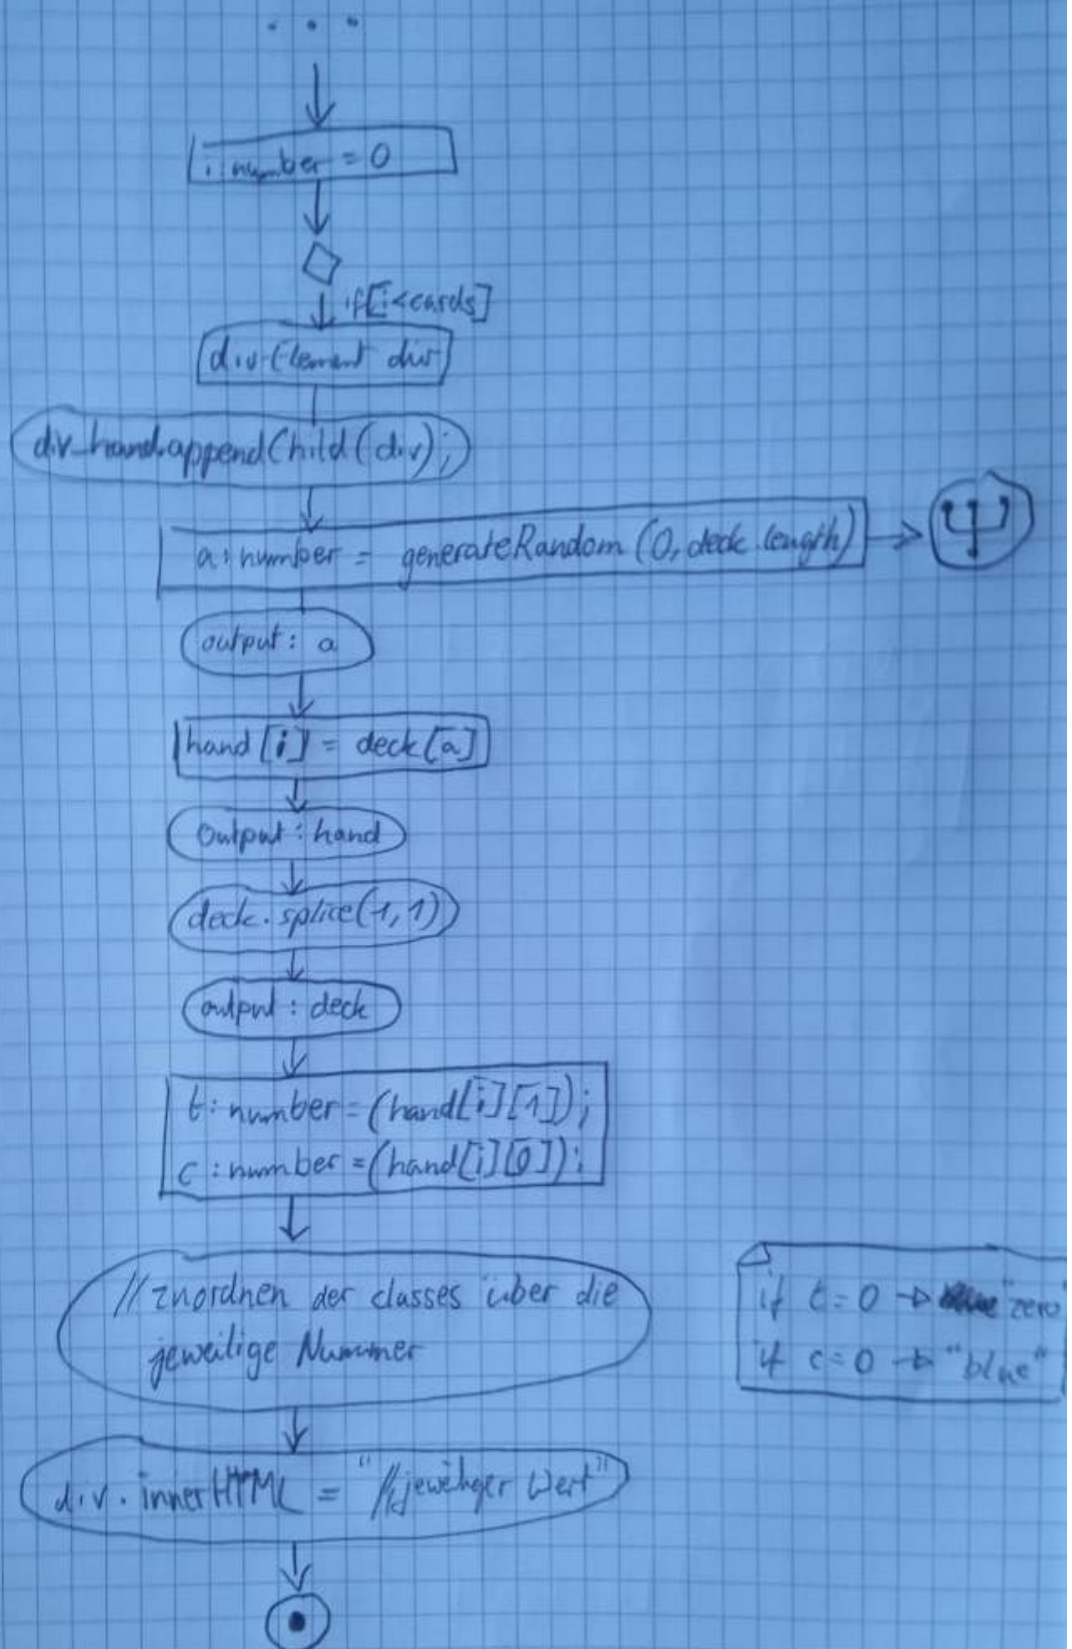 ...
i number = 0
if[i<cards]
div-Element div
div_hand.appendChild(div);
a:number = generateRandom(0, deck.length)
output: a
hand[i] = deck[a]
Output: hand
deck.splice(1,1)
output: deck
t: number = (hand[i][1]);
c: number = (hand[i][0]);
//zuordnen der classes über die
jeweilige Nummer
if t=0 → "zero"
if c=0 → "blue"
div.innerHTML = "//jeweiliger Wert"